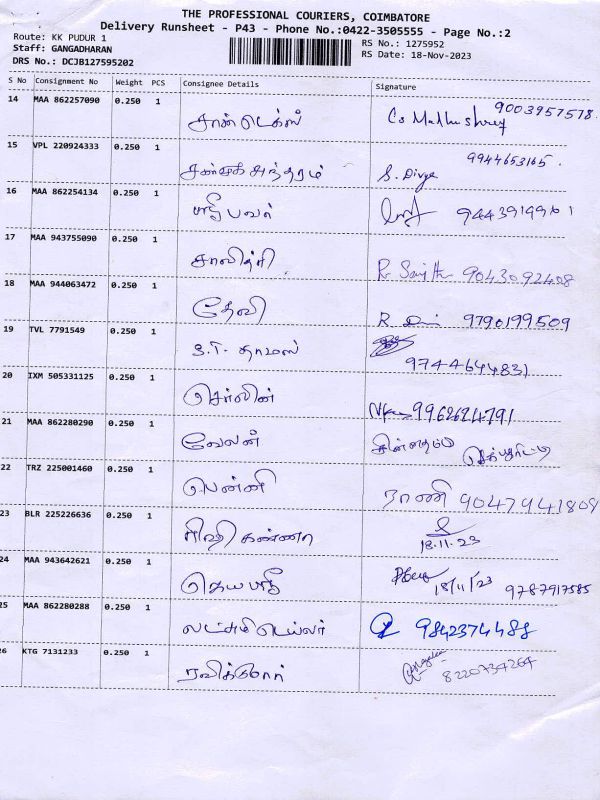 THE PROFESSIONAL COURIERS, COIMBATORE
Delivery Runsheet - P43 - Phone No.:0422-3505555 - Page No.:2
Route: KK PUDUR 1
Staff: GANGADHARAN
DRS No.: DCJB127595202
RS No.: 1275952
RS Date: 18-Nov-2023
S No Consignment No Weight PCS Consignee Details Signature
14 MAA 862257090 0.250 1
9003957578
15 VPL 220924333 0.250 1
S. Divya 9944653165
16 MAA 862254134 0.250 1
17 MAA 943755090 0.250 1
சாவித்ரி 9043092408
18 MAA 944063472 0.250 1
தேவி R. 9790199509
19 TVL 7791549 0.250 1
S.T. தாமஸ் 9744644831
20 IXM 505331125 0.250 1
செர்லின் 9962624791
21 MAA 862280290 0.250 1
வேலன்
22 TRZ 225001460 0.250 1
பென்னி ராணி 9047941809
23 BLR 225226636 0.250 1
18.11.23
24 MAA 943642621 0.250 1
ஜெயஸ்ரீ 18/11/23 9787917585
25 MAA 862280288 0.250 1
லட்சுமி டெய்லர் 9842374488
26 KTG 7131233 0.250 1
ரவிக்குமார் 8220734264